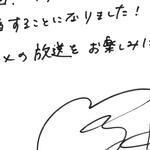 することになりました！
メの放送をお楽しみに